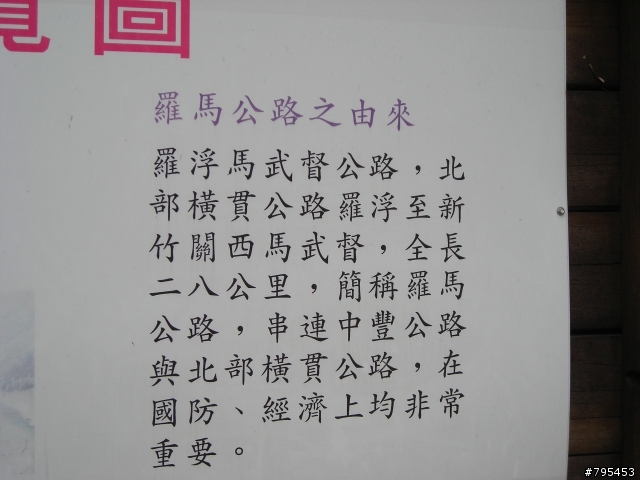 覽圖
羅馬公路之由來
羅浮馬武督公路，北
部橫貫公路羅浮至新
竹關西馬武督，全長
二八公里，簡稱羅馬
公路，串連中豐公路
與北部橫貫公路，在
國防、經濟上均非常
重要。
#795453